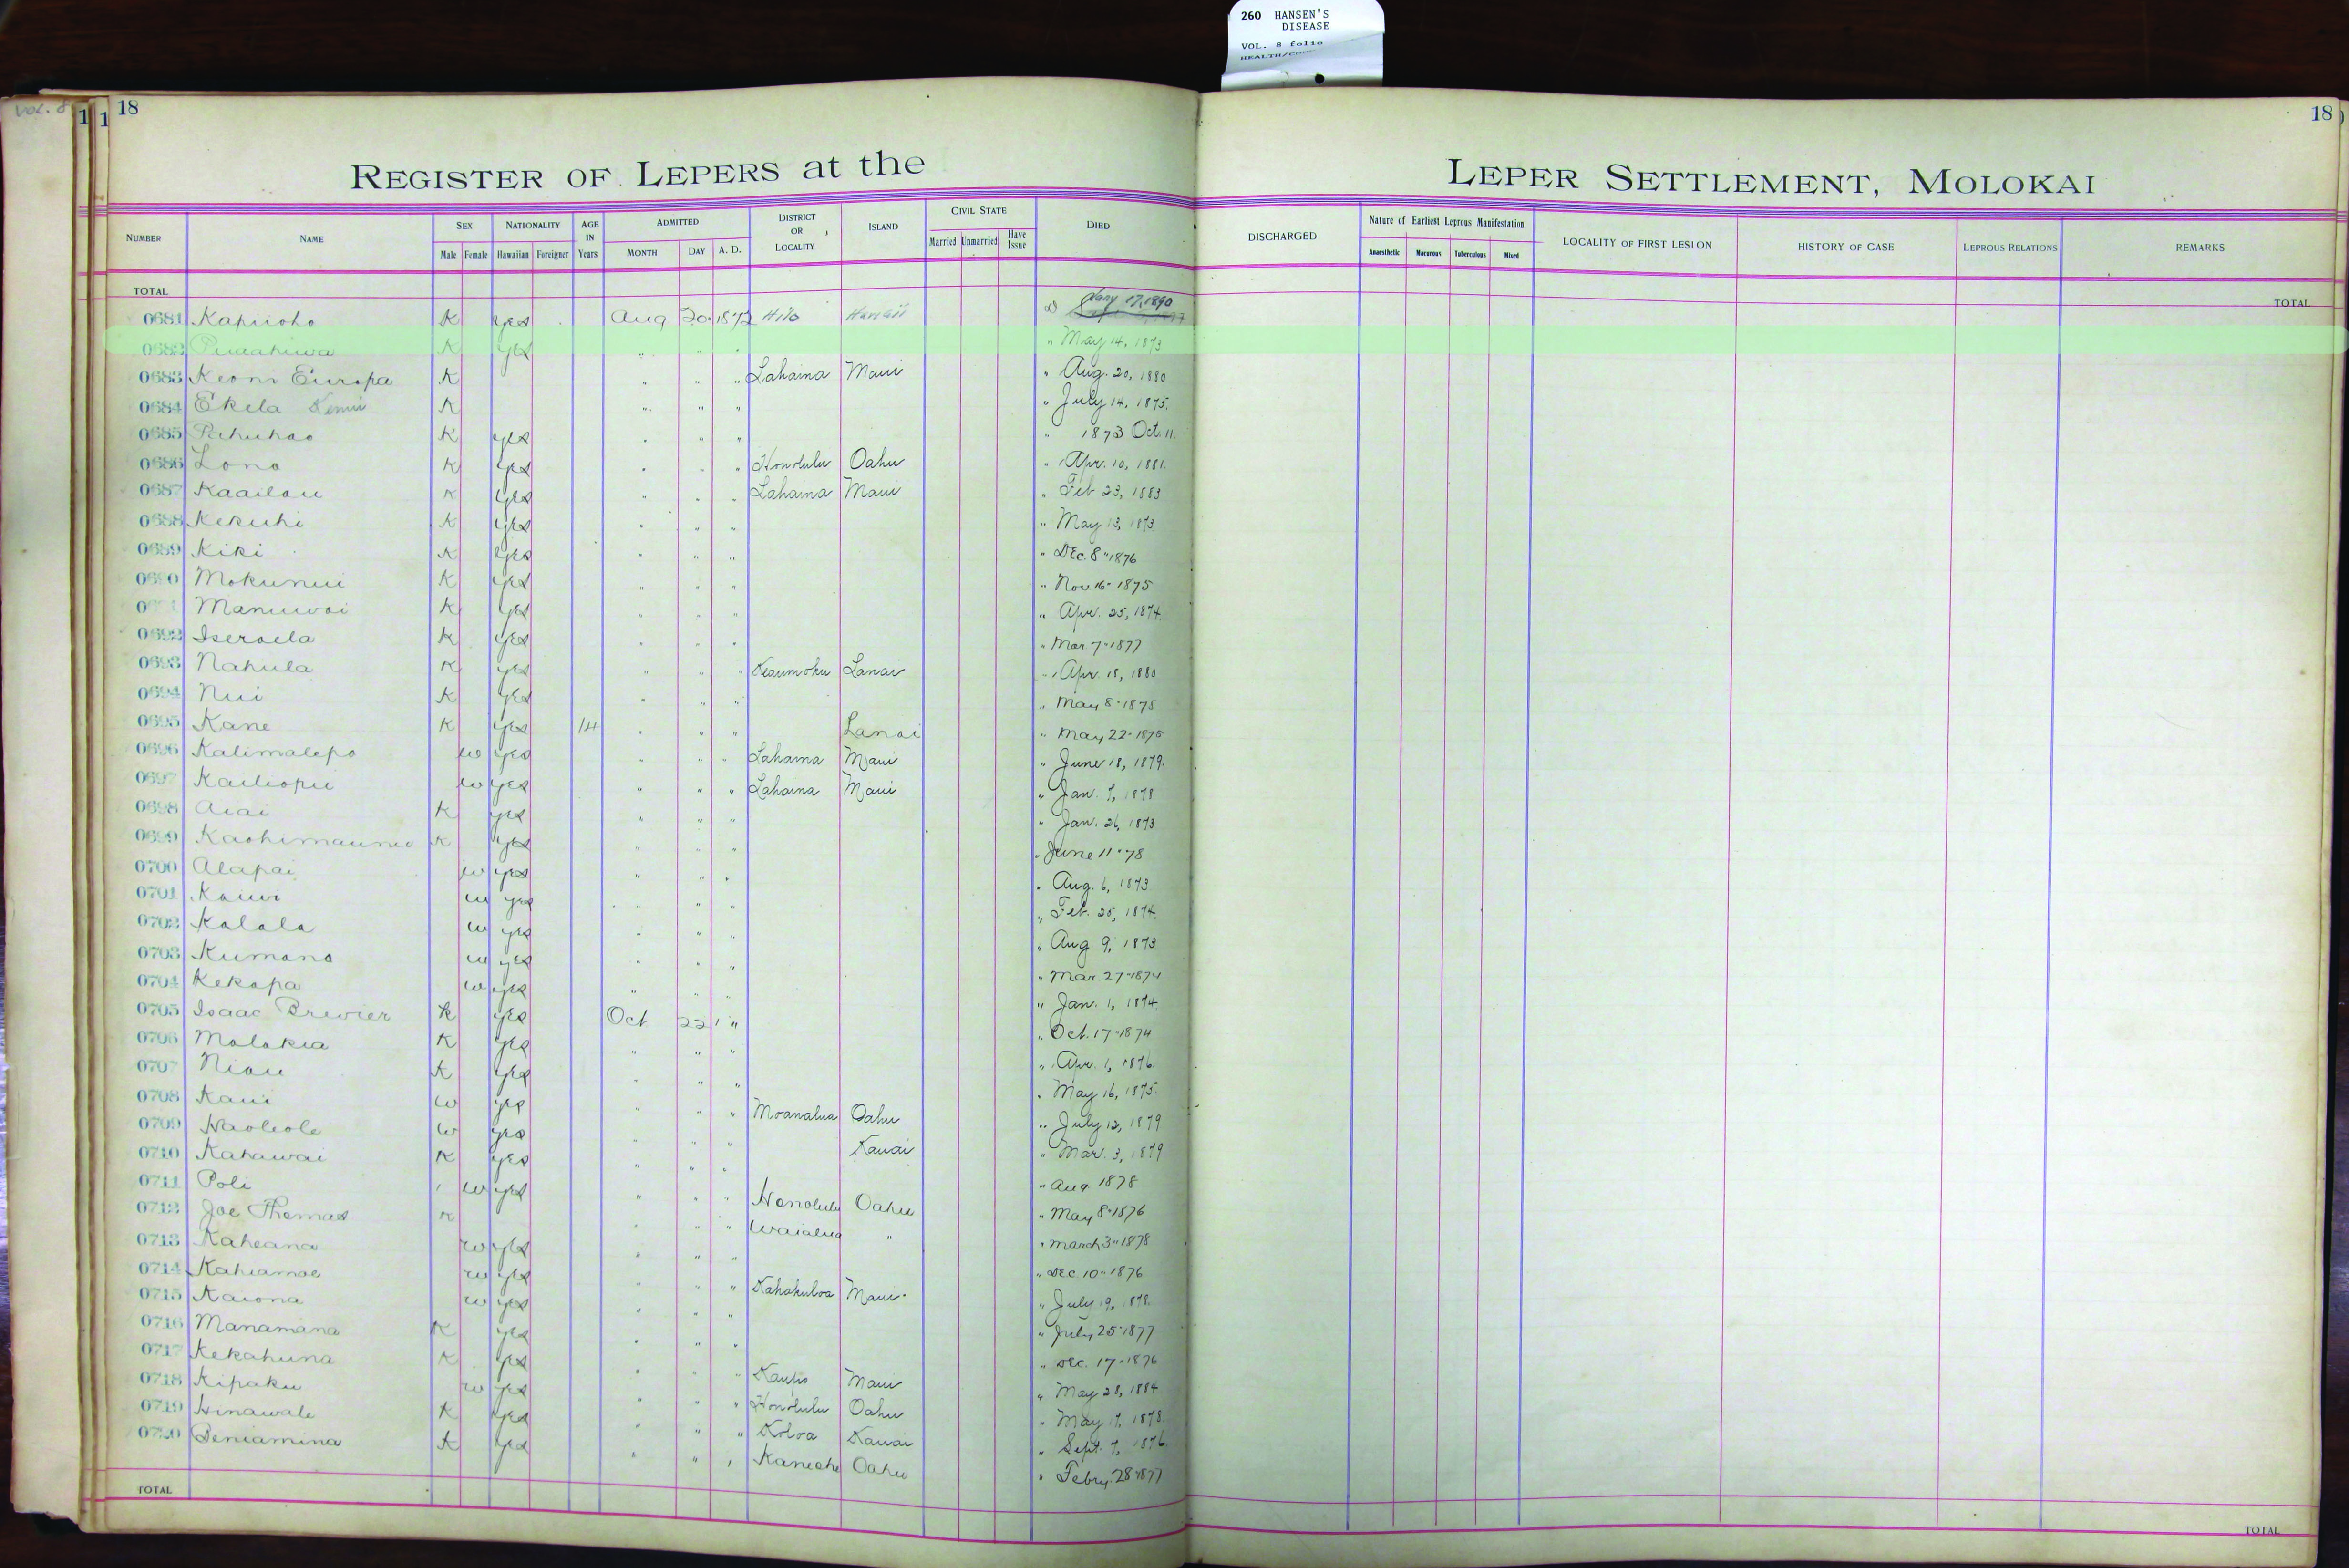 260 HANSEN'S
DISEASE
VOL. 8 folio
Vol. 8
1 1 18
18
REGISTER OF LEPERS at the LEPER SETTLEMENT, MOLOKAI
NUMBER NAME SEX Male Female NATIONALITY Hawaiian Foreigner AGE IN Years ADMITTED MONTH DAY A. D. DISTRICT OR LOCALITY ISLAND CIVIL STATE Married Unmarried Have Issue DIED DISCHARGED Nature of Earliest Leprous Manifestation Anaesthetic Macurous Tuberculous Mixed LOCALITY OF FIRST LESION HISTORY OF CASE LEPROUS RELATIONS REMARKS
TOTAL TOTAL
0681 Kapuoho K yes Aug 20 1872 Hilo Hawaii Jany 17, 1890
0682 Puaahiwa K yes " " " " May 14, 1873
0683 Keoni Europa K " " " Lahaina Maui " Aug. 20, 1880
0684 Ekela K " " " " July 14, 1875.
0685 Pahuhao K yes " " " " 1873 Oct. 11.
0686 Lono K yes " " " Honolulu Oahu " Apr. 10, 1881.
0687 Kaailau K yes " " " Lahaina Maui " Feb 23, 1883
0688 Kekuhi K yes " " " " May 13, 1873
0689 Kiki K yes " " " " Dec. 8" 1876
0690 Mokunui K yes " " " " Nov 16- 1875
Manuwai K yes " " " " Apr. 25, 1874.
0692 Iseraela K yes " " " " Mar. 7" 1877
0693 Nahula K yes " " " Keaumoku Lanai " Apr. 18, 1880
0694 Nui K yes " " " " May 8" 1875
0695 Kane K yes 14 " " " Lanai " May 22- 1875
0696 Kalimalepo w yes " " " Lahaina Maui " June 18, 1879.
0697 Kailiopu w yes " " " Lahaina Maui " Jan. 7, 1878
0698 Aiai K yes " " " " Jan. 26, 1873
0699 K yes " " " " June 11" 78
0700 Alapai w yes " " " " Aug. 6, 1873
0701 Kauwi w yes " " " " Feb. 25, 1874.
0702 Kalala w yes " " " " Aug 9, 1873
0703 Kumano w yes " " " " Mar. 27" 1874
0704 Kekapa w yes " " " " Jan. 1, 1874.
0705 Isaac Brewier K yes Oct 22 " " Oct. 17" 1874
0706 Molokia K yes " " " " Apr. 1, 1876.
0707 Niau K yes " " " " May 16, 1875.
0708 Kaui w yes " " " Moanalua Oahu " July 12, 1879
0709 Haoleole w yes " " " Kauai " Mar. 3, 1879
0710 Kahawai K yes " " " " Aug 1878
0711 Poli w yes " " " Honolulu Oahu " May 8" 1876
0712 Joe Thomas K " " " Waialua " " March 3" 1878
0713 Kaheana w yes " " " " Dec. 10" 1876
0714 Kahiamoe w yes " " " Kahakuloa Maui " July 19, 1878.
0715 Kaiona w yes " " " " July 25" 1877
0716 Manamana K yes " " " " Dec. 17- 1876
0717 Kekahuna K yes " " " Kaupo Maui " May 28, 1884
0718 Kipaku w yes " " " Honolulu Oahu " May 17, 1878.
0719 Hinawale K yes " " " Koloa Kauai " Sept. 7, 1876.
0720 Beniamina K yes " " " Kaneohe Oahu " Febry. 28" 1877
TOTAL TOTAL